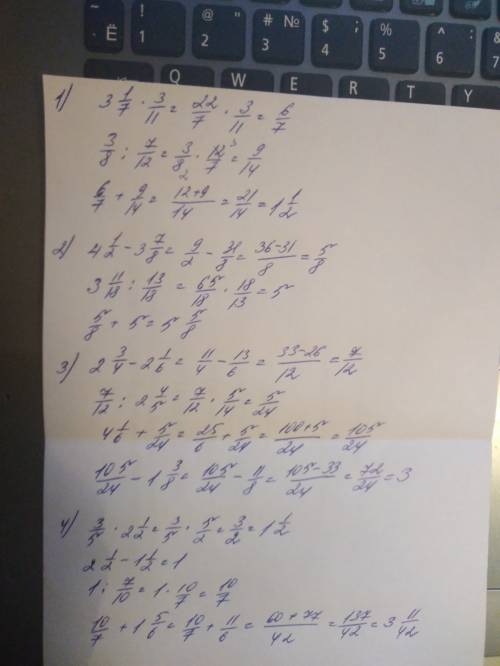 ~ Ё ! 1 @ " 2 # № 3 $ ; 4 % 5 ^ : 6 &
Q W E R T Y
1) 3 1/7 · 3/11 = 22/7 · 3/11 = 6/7
3/8 : 7/12 = 3/8 · 12/7 = 9/14
6/7 + 9/14 = (12+9)/14 = 21/14 = 1 1/2
2) 4 1/2 - 3 7/8 = 9/2 - 31/8 = (36-31)/8 = 5/8
3 11/18 : 13/18 = 65/18 · 18/13 = 5
5/8 + 5 = 5 5/8
3) 2 3/4 - 2 1/6 = 11/4 - 13/6 = (33-26)/12 = 7/12
7/12 : 2 4/5 = 7/12 · 5/14 = 5/24
4 1/6 + 5/24 = 25/6 + 5/24 = (100+5)/24 = 105/24
105/24 - 1 3/8 = 105/24 - 11/8 = (105-33)/24 = 72/24 = 3
4) 3/5 · 2 1/2 = 3/5 · 5/2 = 3/2 = 1 1/2
2 1/2 - 1 1/2 = 1
1 : 7/10 = 1 · 10/7 = 10/7
10/7 + 1 5/6 = 10/7 + 11/6 = (60+77)/42 = 137/42 = 3 11/42